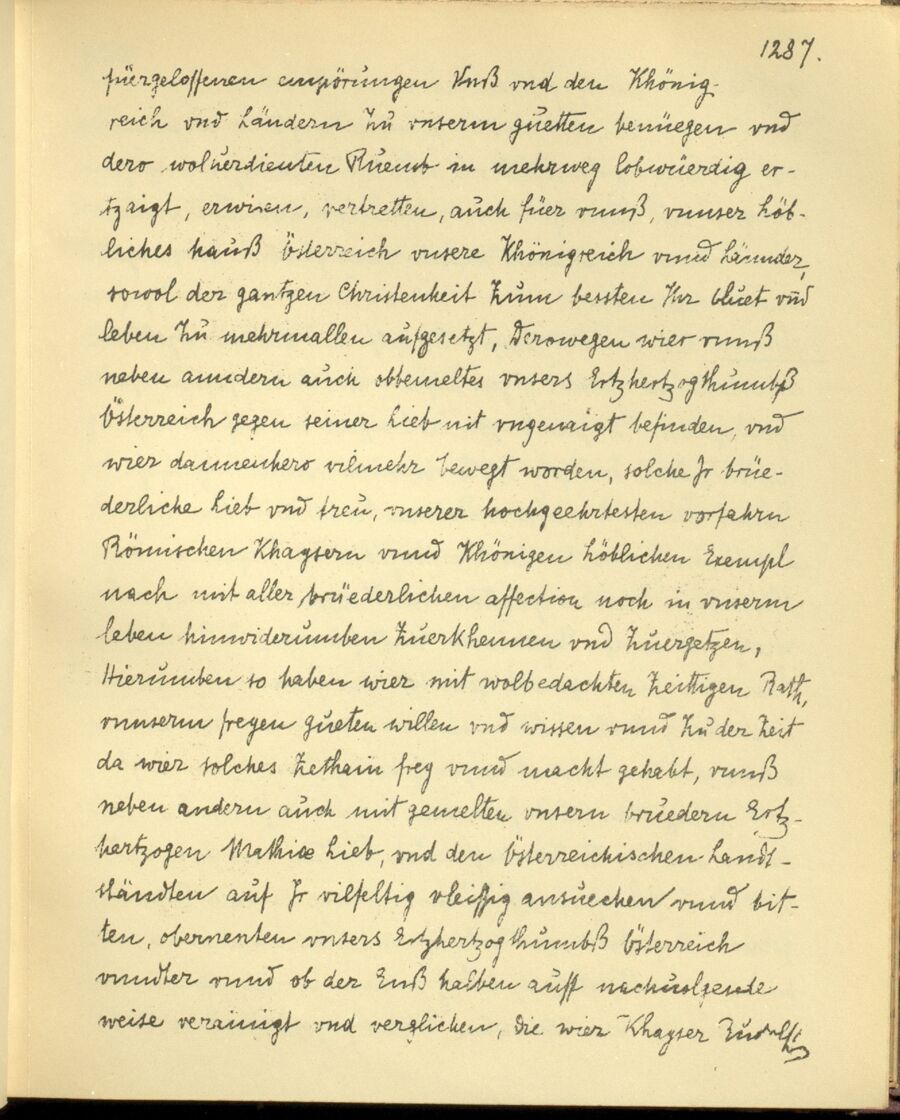 1287.
fürgeloffenen empörungen Unß vnd den Khönig-
reich vnd Ländern zu vnserm guetten benüegen vnd
dero woluerdienten Ruemb in mehrweg lobwüerdig er-
tzaigt, erwisen, vertretten, auch füer vnnß, vnnser Löb-
liches hauß Österreich vnsere Khönigreich vnnd Lännder,
sowol der gantzen Christenheit zum bessten Ihr bluet vnd
leben zu mehrmallen aufgesetzt, Derowegen wier vnnß
neben anndern auch obbemeltes vnsers Ertzhertzogthumbß
Österreich gegen seiner Lieb nit vngenaigt befinden, vnd
wier dannenhero vilmehr bewegt worden, solche Jr brüe-
derliche Lieb vnd treu, vnserer hochgeehrtesten vorfahrn
Römischen Khaysern vnnd Khönigen Löblichen Exempl
nach mit aller brüederlichen affection noch in vnserm
leben hinwiderumben zuerkhennen vnd zuergetzen,
Hierumben so haben wier mit wolbedachten zeittigen Rath,
vnnserm freyen gueten willen vnd wissen vnnd zu der zeit
da wier solches zethain frey vnnd macht gehabt, vnnß
neben andern auch mit gemelten vnsern bruedern Ertz-
hertzogen Mathiæ Lieb, vnd den Österreichischen Landt-
ständten auf Jr vilfeltig vleissig ansuechen vnnd bit-
ten, obernenten vnsers Ertzhertzogthumbß Österreich
vnndter vnnd ob der Enß halben auff nachuolgende
weise verainigt vnd verglichen, die wier Khayser Rudolff